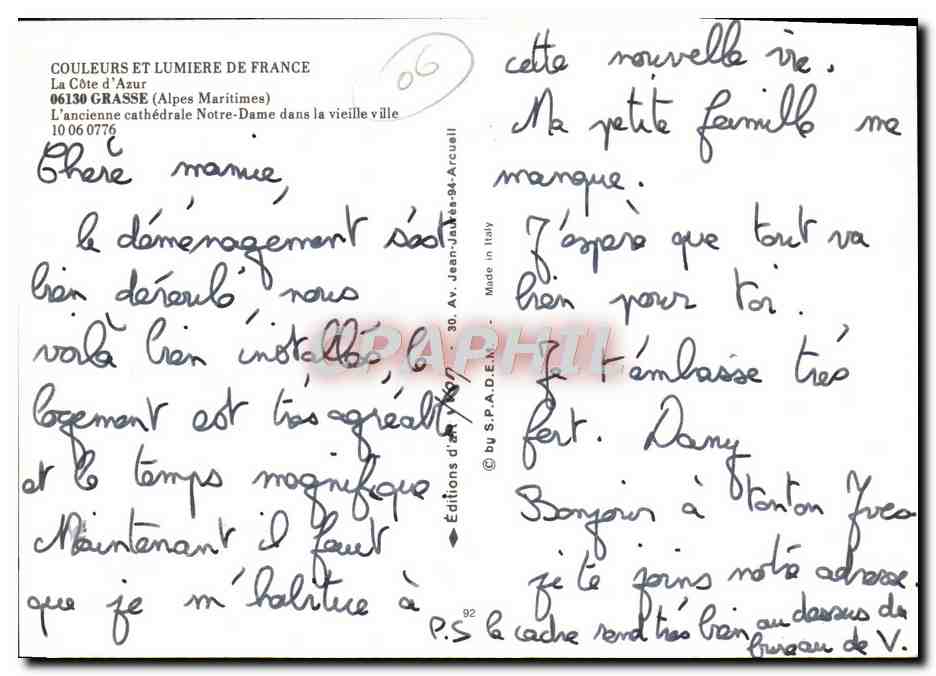 COULEURS ET LUMIERE DE FRANCE
La Côte d'Azur
06130 GRASSE (Alpes Maritimes)
L'ancienne cathédrale Notre-Dame dans la vieille ville
10 06 0776
06
Chère mamie,
le déménagement s'est
bien déroulé nous
voilà bien installés, le
logement est très agréable
et le temps magnifique
Maintenant il faut
que je m'habitue à
◆ Éditions d'art yvon - 30. Av. Jean-Jaurès-94-Arcueil
© by S.P.A.D.E.M. - Made in Italy
92
CPAPHIL
cette nouvelle vie.
Ma petite famille me
manque.
J'espère que tout va
bien pour toi.
Je t'embrasse très
fort. Dany
Bonjour à tonton Yves
je te joins notre adresse.
P.S le cadre rend très bien au dessus du
bureau de V.